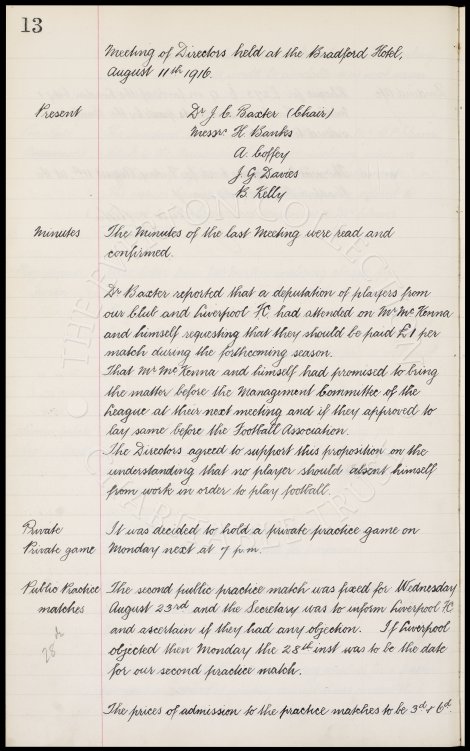 13
Meeting of Directors held at the Bradford Hotel,
August 11th 1916.
Present Dr J. C. Baxter (Chair)
Messrs H. Banks
A. Coffey
J. G. Davies
B. Kelly
Minutes The Minutes of the last Meeting were read and
confirmed.
Dr Baxter reported that a deputation of players from
our club and Liverpool FC, had attended on Mr McKenna
and himself requesting that they should be paid £1 per
match during the forthcoming season.
That Mr McKenna and himself had promised to bring
the matter before the Management Committee of the
League at their next meeting and if they approved to
lay same before the Football Association.
The Directors agreed to support this proposition on the
understanding that no player should absent himself
from work in order to play football.
Private It was decided to hold a private practice game on
Private game Monday next at 7 p.m.
Public Practice The second public practice match was fixed for Wednesday
matches August 23rd and the Secretary was to inform Liverpool FC
28th and ascertain if they had any objection. If Liverpool
objected then Monday the 28th inst was to be the date
for our second practice match.
The prices of admission to the practice matches to be 3d & 6d.
THE EVERTON COLLECTION
CHARITABLE TRUST